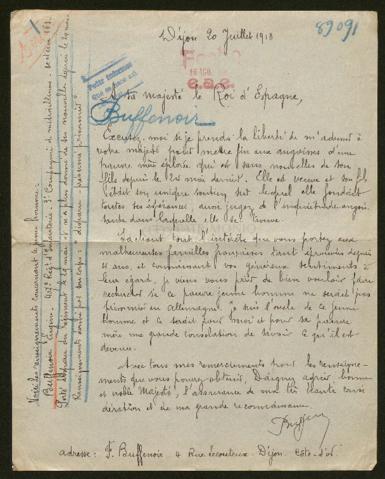 Dijon 20 Juillet 1918
89091
A sa majesté le Roi d'Espagne,
Buffenoir
Excusez moi si je prends la liberté de m'adresser à
votre majesté pour mettre fin aux angoisses d'une
pauvre mère éplorée qui est sans nouvelles de son
fils depuis le 24 mai dernier. Elle est veuve et son fil
était son unique soutien sur lequel elle fondait
toutes ses espérances, aussi jugez de l'inquiétude angois-
sante dans laquelle elle se trouve.
Sachant tout l'intérêt que vous portez aux
malheureuses familles françaises tant éprouvées depuis
4 ans, et connaissant vos généreux sentiments à
leur égard, je viens vous prier de bien vouloir faire
rechercher si ce pauvre jeune homme ne serait pas
prisonnier en Allemagne. Je suis l'oncle de ce jeune
homme et ce serait pour moi et pour sa pauvre
mère une grande consolation de savoir ce qu'il est
devenu.
Avec tous mes remerciements pour les renseigne-
ments que vous pourrez obtenir, Daignez agréer bonne
et noble Majesté, l'assurance de ma très haute consi-
dération et de ma grande reconnaissance.
Buffenoir
adresse : F. Buffenoir 4 Rue Lecouteux Dijon Côte-d'Or
Voici les renseignements concernant le jeune homme :
Buffenoir Eugène 407e Régt d'Infanterie 3e Compagnie de mitrailleuses
Renseignements donnés par son corps : disparu présumé prisonnier